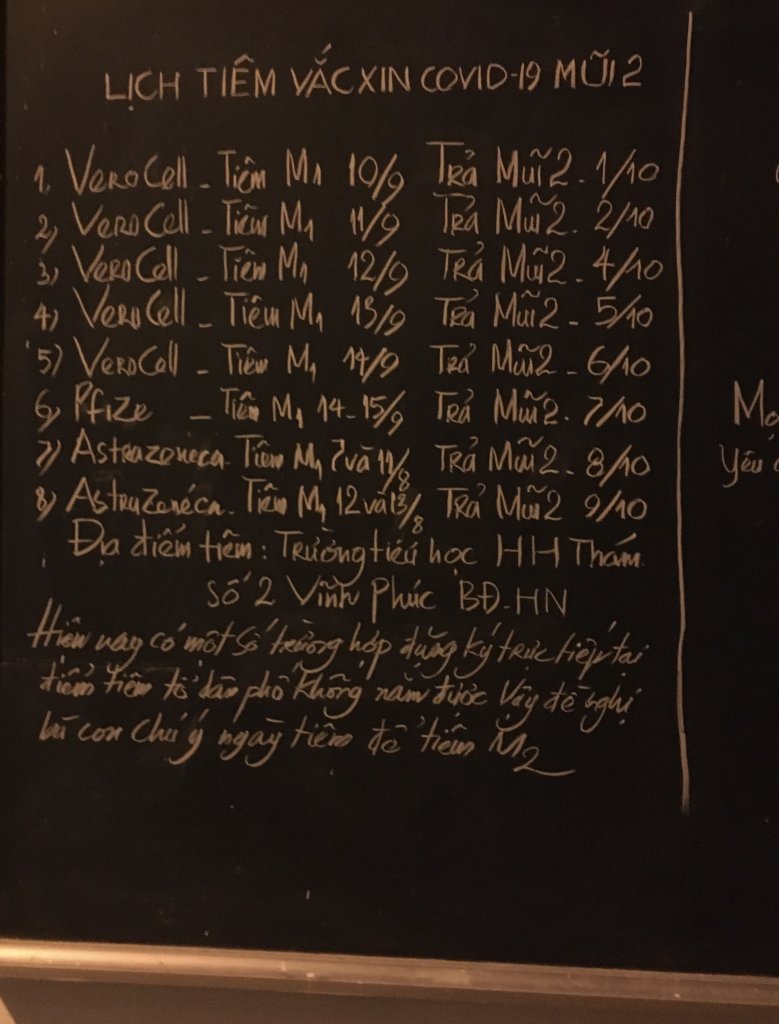 LỊCH TIÊM VẮCXIN COVID-19 MŨI 2
1, VEROCell - Tiêm M1 10/9 Trả Mũi 2. 1/10
2) VEROCell - Tiêm M1 11/9 Trả Mũi 2. 2/10
3) VEROCell - Tiêm M1 12/9 Trả Mũi 2. 4/10
4) VEROCell - Tiêm M1 13/9 Trả Mũi 2 - 5/10
5) VEROCell - Tiêm M1 14/9 Trả Mũi 2 - 6/10
6) Pfize - Tiêm M1 14-15/9 Trả Mũi 2. 7/10
7) Astrazeneca. Tiêm M1 7 và 11/8 Trả Mũi 2. 8/10
8) AstraZeneca. Tiêm M1 12 và 13/8 Trả Mũi 2 9/10
Địa điểm tiêm: Trường tiểu học HH Thám.
Số 2 Vĩnh Phúc BĐ.HN
Hiện nay có một số trường hợp đăng ký trực tiếp tại
điểm tiêm tổ dân phố không nắm được vậy đề nghị
bà con chú ý ngày tiêm để tiêm M2
Yêu